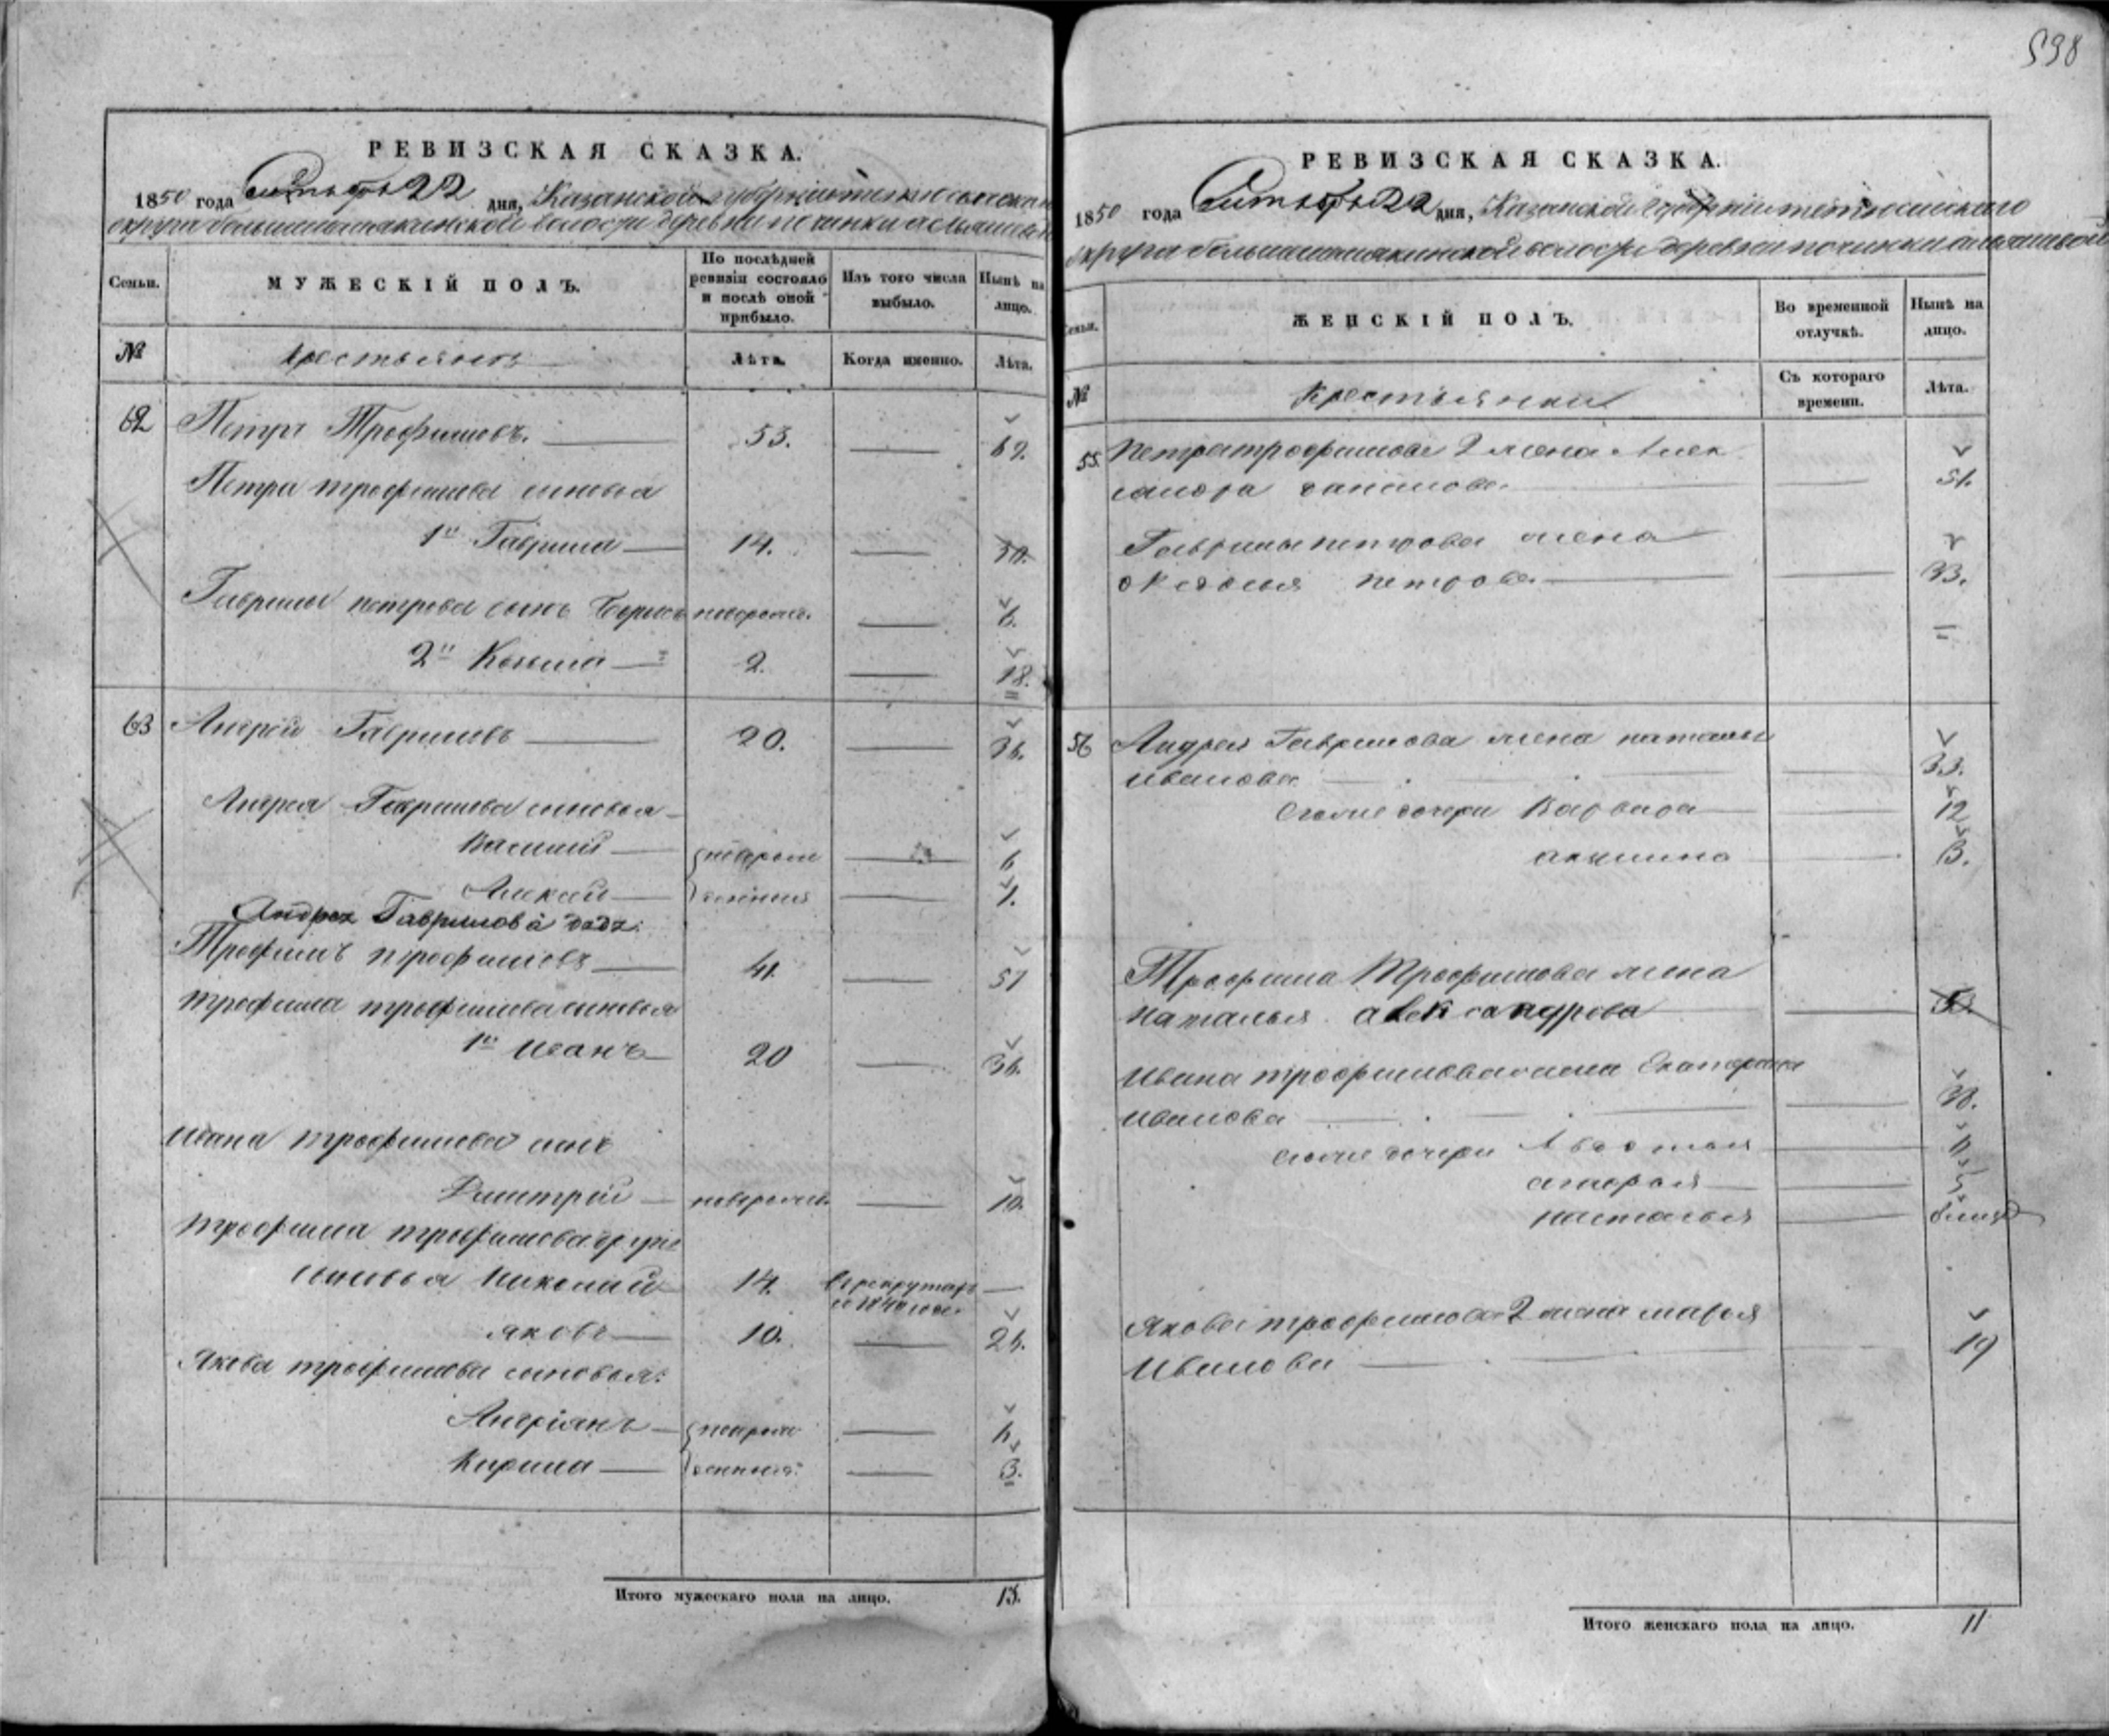 598
РЕВИЗСКАЯ СКАЗКА.
1850 года Октября 22 дня, Казанской губерніи
округа волости деревни починки
Семьи. МУЖЕСКІЙ ПОЛЪ. По послѣдней ревизіи состояло и послѣ оной прибыло. Изъ того числа выбыло. Нынѣ на лицо.
№ крестьянъ Лѣта. Когда именно. Лѣта.
62 Петръ Трофимовъ. 53. 69.
Петра трофимова сыновья
1й Гаврила 14. 30.
Гаврилы петрова сынъ Борисъ новорож. 6.
2й Козьма 2. 18.
63 Андрей Гавриловъ 20. 36.
Андрея Гаврилова сыновья
Василий новорож 6
Алексей денныя 1.
Андрея Гаврилова дядя
Трофимъ трофимовъ 41. 57
трофима трофимова сыновья
1й Иванъ 20 36.
Ивана трофимова сынъ
Дмитрій новорожд. 10.
трофима трофимова другіе
сыновья Николай 14. в рекрутахъ
съ 1840 года
яковъ 10. 26.
Якова трофимова сыновья:
Андріянъ новорож
Кирила денныя 3.
Итого мужескаго пола на лицо. 13.
РЕВИЗСКАЯ СКАЗКА.
1850 года Октября 22 дня, Казанской губерніи тетюшскаго
округа волости деревни починки
Семьи. ЖЕНСКІЙ ПОЛЪ. Во временной отлучкѣ. Нынѣ на лицо.
№ Крестьянки Съ котораго времени. Лѣта.
55. Петра трофимова 2 жена Алек
сандра 51.
Гаврилы петрова жена
петрова 33.
56 Андрея Гаврилова жена наталья
иванова 33.
его же дочери Варвара 12
акулина 3.
Трофима Трофимова жена
Наталья александрова
Ивана трофимова жена Екатерина
иванова 38.
его же дочери Авдотья 11
наталья
Якова трофимова 2 жена марья
Иванова 19
Итого женскаго пола на лицо. 11